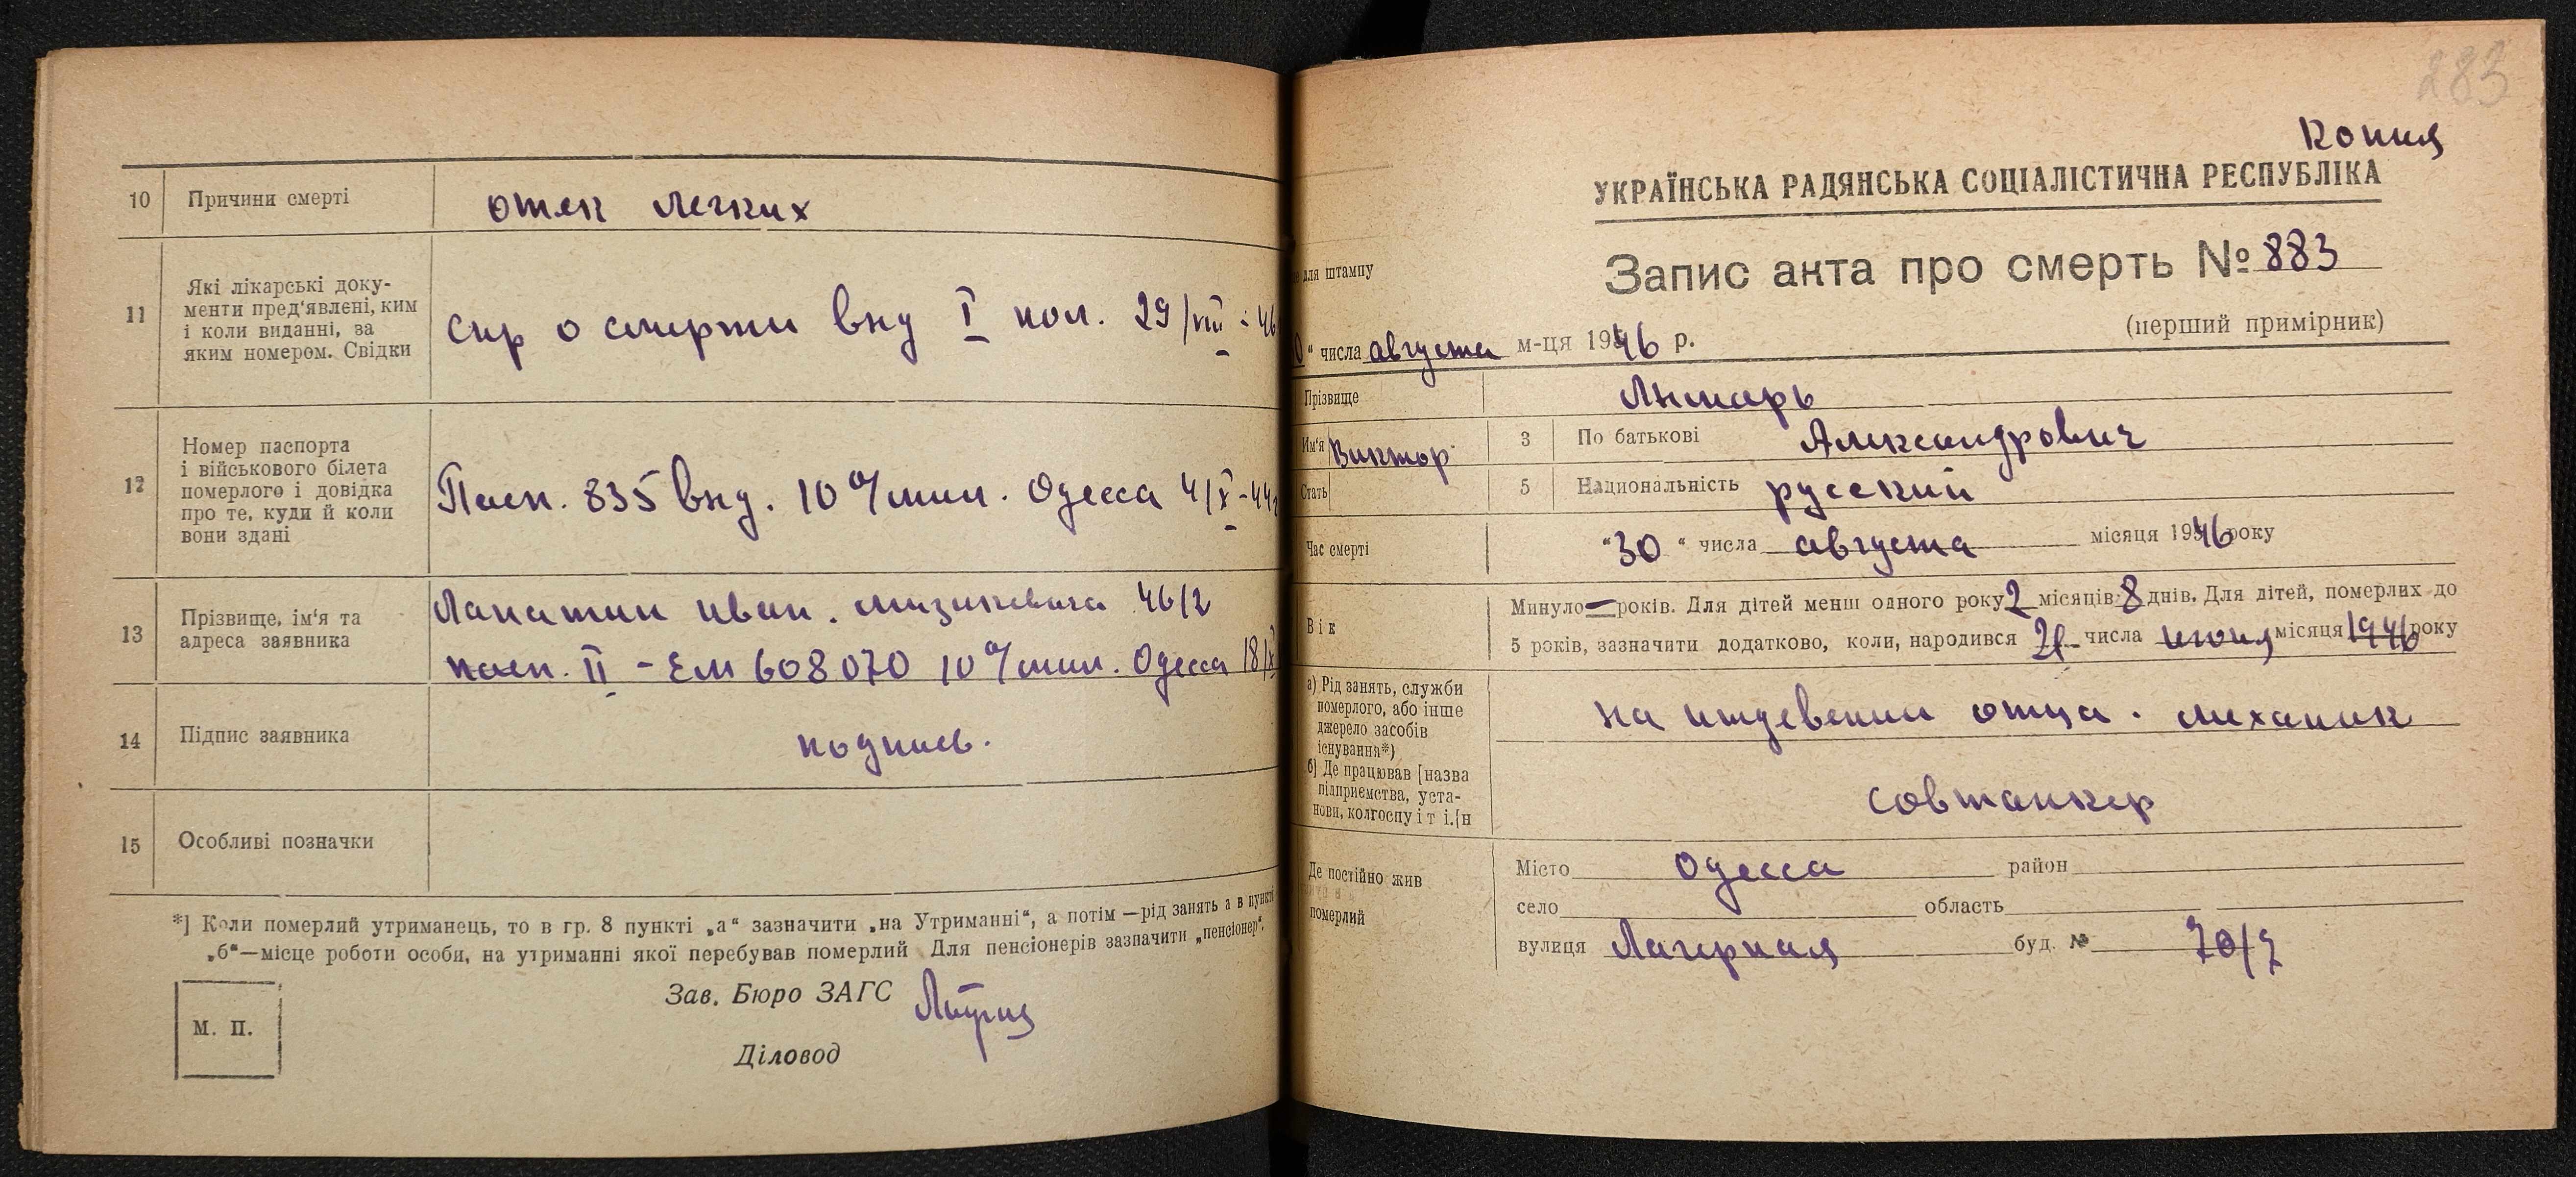 10 Причини смерти отек легких
11 Які лікарські доку-
менти пред'явлені, ким
і коли виданні, за
яким номером. Свідки
спр о смерти вну I пол. 29/VIII-46
12 Номер паспорта
і військового білета
померлого і довідка
про те, куди й коли
вони здані
Пасп. 835 вну. 10 о/мил. Одесса 4/X-44г
13 Прізвище, ім'я та
адреса заявника
Лапатин иван. 46/2
пасп. II - ЕМ 608070 10 о/мил. Одесса 18/X
14 Підпис заявника подпись.
15 Особливі позначки
*] Коли померлий утриманець, то в гр. 8 пункті „а“ зазначити „на Утриманні“, а потім —рід занять а в пункті
„б“—місце роботи особи, на утриманні якої перебував померлий Для пенсіонерів зазначити „пенсіонер“.
М. П.
Зав. Бюро ЗАГС
Діловод
283
Копия
УКРАЇНСЬКА РАДЯНСЬКА СОЦІАЛІСТИЧНА РЕСПУБЛІКА
для штампу
Запис акта про смерть № 883
(перший примірник)
0“ числа августа м-ця 1946 р.
Прізвище
Им'я Виктор 3 По батькові Александрович
Стать 5 Национальність русский
Час смерті “30“ числа августа місяця 1946 року
Вік
Минуло — років. Для дітей менш одного року 2 місяців 8 днів. Для дітей, померлих до
5 років, зазначити додатково, коли, народився числа июня місяця 1946 року
а) Рід занять, служби
померлого, або інше
джерело засобів
існування*)
б) Де працював [назва
підприємства, уста-
нови, колгоспу і т і.[н
на иждевении отца. механик
совтанкер
Де постійно жив
померлий
Місто Одесса район
село область
вулиця Лагерная буд. № 70/7